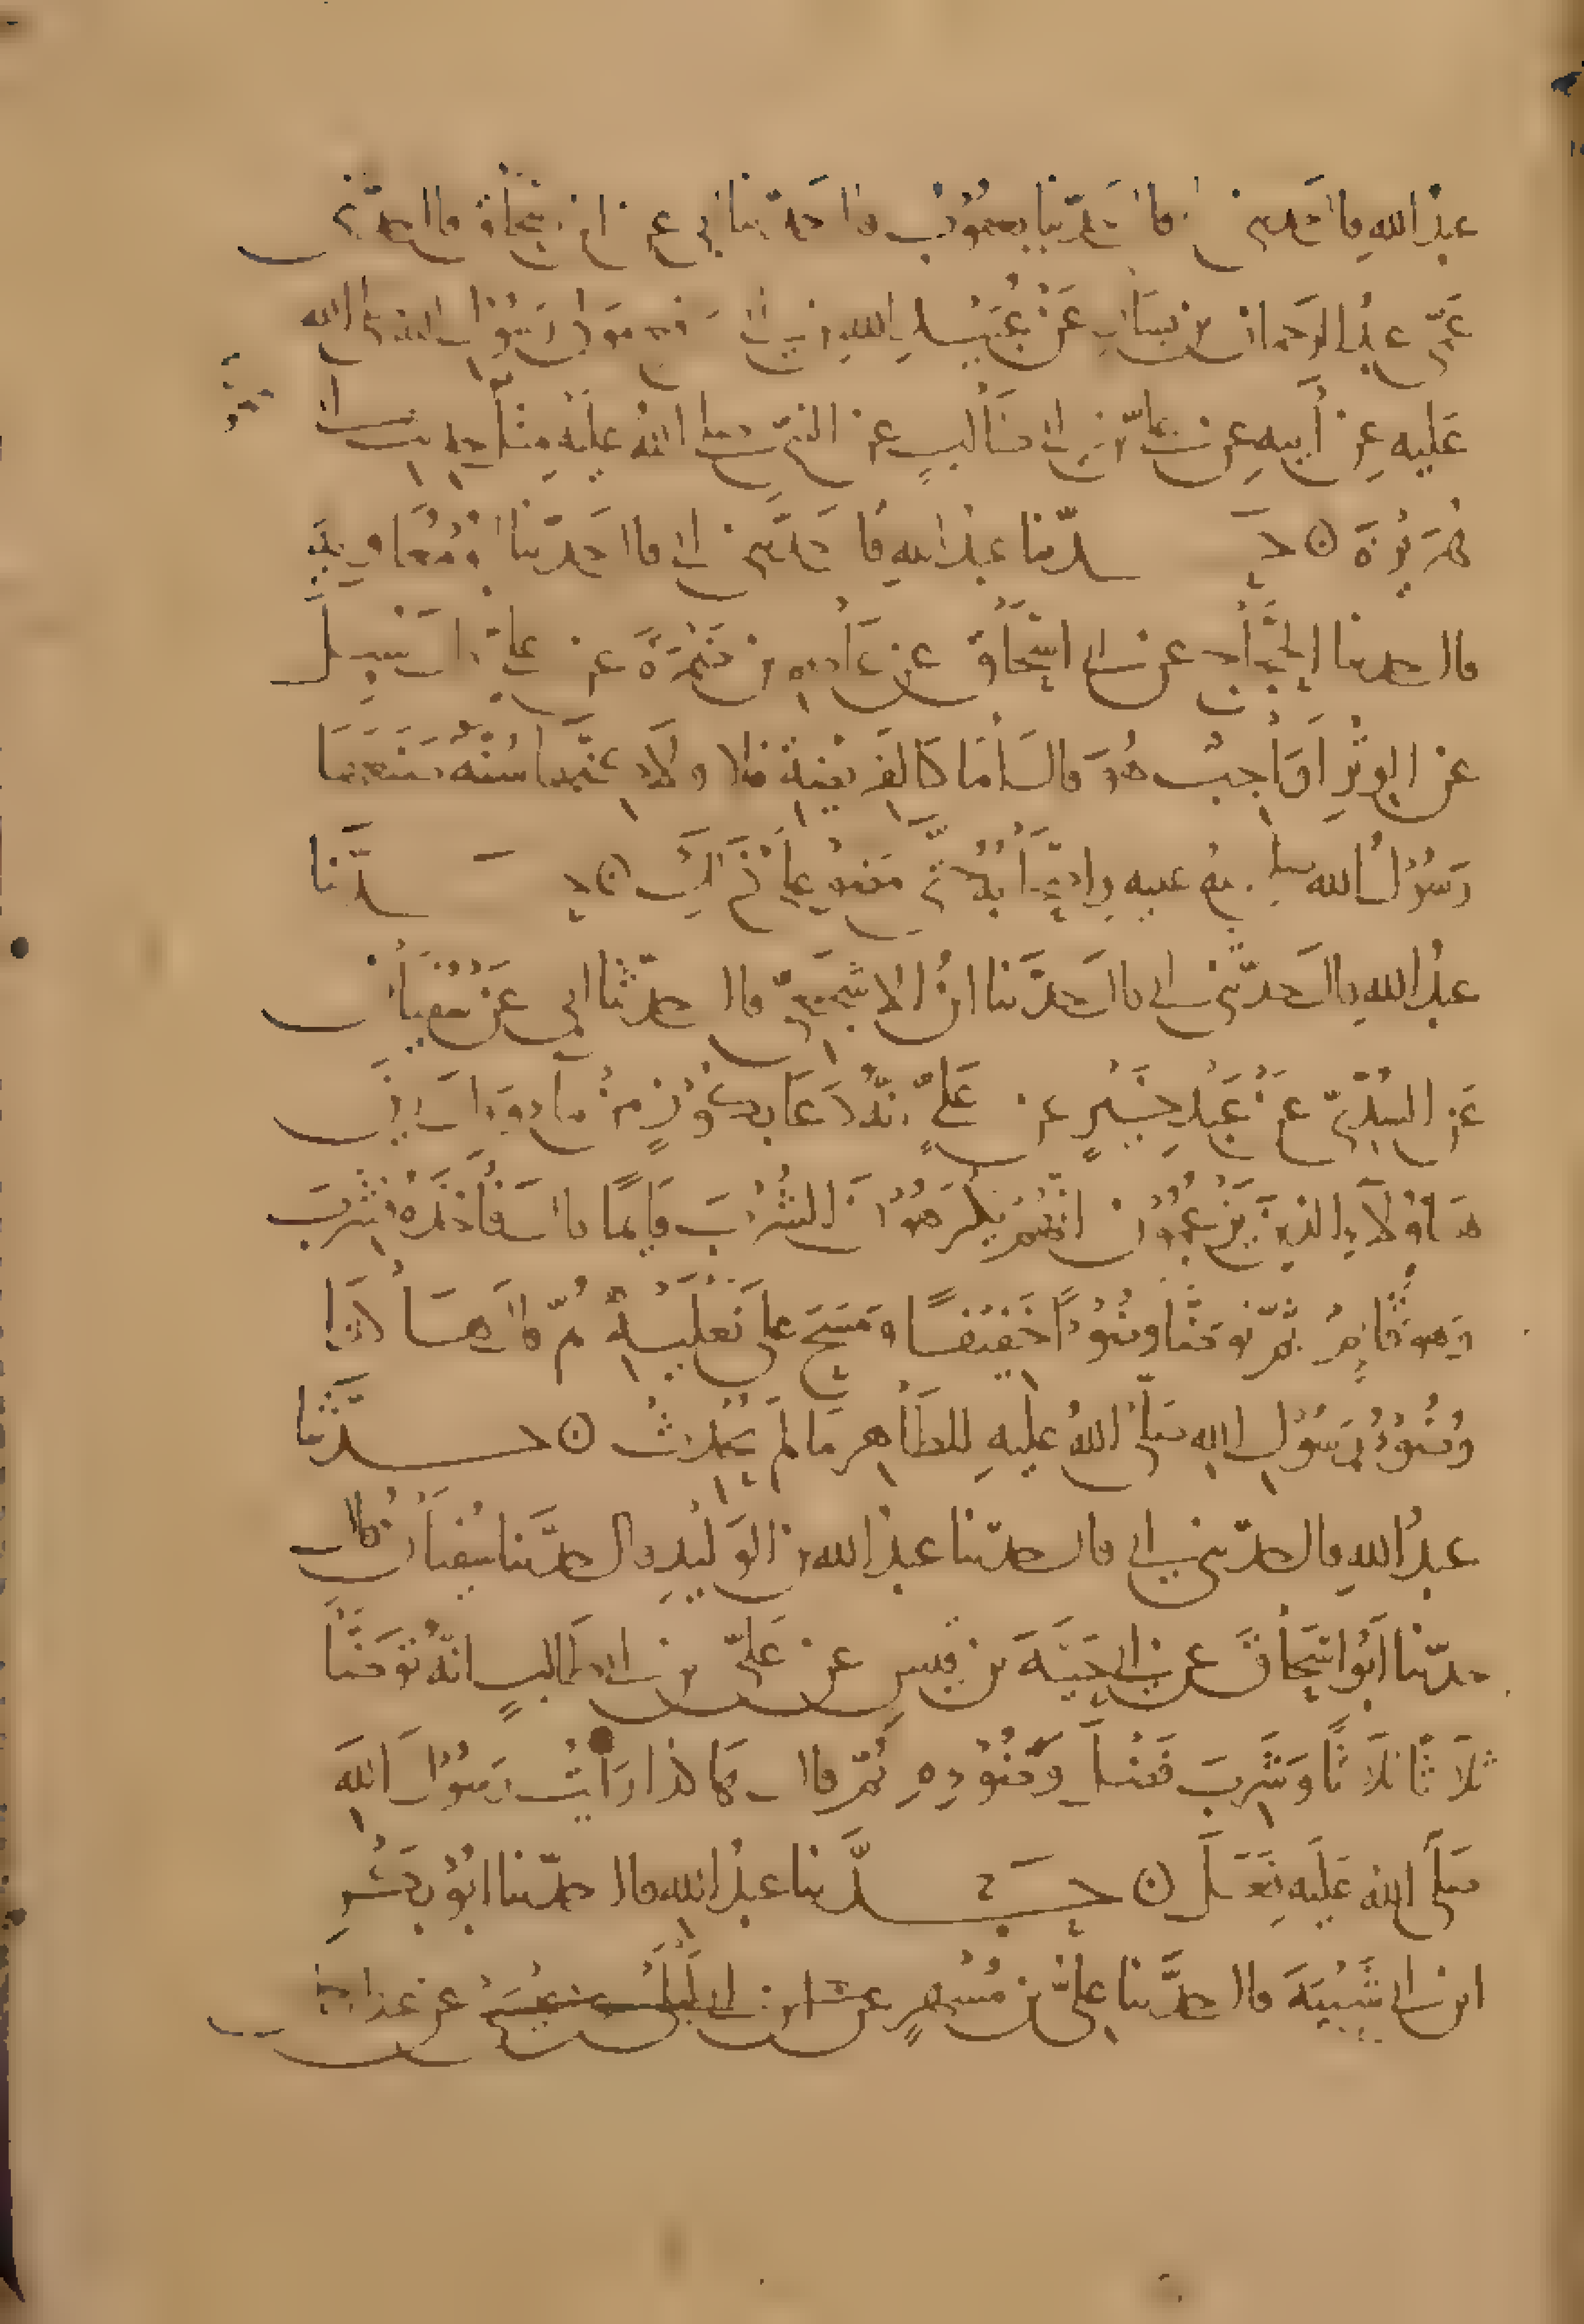 عبدُ اللهِ قال حدثني أبي قال حَدّثنا يعقوبُ قال حَدّثنا أبي عن ابن إسحاق قال حدّثني
عَمّي عبدُ الرحمان بن يسارٍ عَنْ عُبَيْدِ اللهِ بن أبي رافع مولى رسُول الله صلى الله
عَليه عن أبيهِ عن عليّ بن أبي طالبٍ عن النبيّ صلى اللهُ عليْهِ مثل حديث أبي
هُرَيْرَةَ ۞ حَدّثنا عبدُ اللهِ قال حَدّثني أبي قال حَدّثنا أبُو مُعَاويةَ
قال حدثنا الحجّاجُ عن أبي إسْحَاقَ عن عَاصِمِ بن ضَمْرَةَ عن عليٍّ قال سُئِلَ
عن الوِتْرِ أوَاجبٌ هُوَ قال أمّا كالفَريْضةِ فلا ولكنّها سُنّةٌ صَنَعَهَا
رَسُولُ الله صلى الله عليه وأصْحابُهُ حتّى مَضَوْا على ذَلِكَ ۞ حدَّثنا
عبدُ اللهِ قال حَدّثني أبي قال حَدَّثنا ابنُ الأشجَعيّ قال حدّثنا أبي عَنْ سُفيَانَ
عَن السُدّيّ عَنْ عَبْدِ خَيْرٍ عن عَليٍّ أنّهُ دَعَا بكُوْزٍ مِنْ ماءٍ ثم قال أينَ
هَاؤُلآءِ الذينَ يَزْعُمُوْنَ أنّهُمْ يَكْرَهُوْنَ الشُّرْبَ قَايمًا قال فأخَذَهُ فشَرِبَ
وَهو قَايمٌ ثمّ تَوَضّأ وُضُوْءًا خَفيْفًا وَمَسَحَ على نَعْليْهِ ثُمّ قال هَكَذا
وُضُوْءُ رَسُوْلِ اللهِ صَلّى اللهُ عليهِ للطَاهِر مَا لَمْ يُحْدِثْ ۞ حَدَّثنا
عبدُ اللهِ قال حدّثني أبي قال حدّثنا عبدُ الله بن الوَليْدِ قال حدَّثنا سُفيَانُ قال
حدّثنا أبُو إسْحَاقَ عن أبي حَيّةَ بن قيسٍ عن عَليّ بن أبي طَالبٍ أنّهُ تَوَضّأ
ثلَاثًا ثلَاثًا وَشَرِبَ فَضْلَ وَضُوْءِهِ ثُمّ قال هكذا رَأيْتُ رَسُوْلَ اللهِ
صَلَّى اللهُ عَلَيْهِ فَعَلَ ۞ حَدَّثنا عبدُ اللهِ قال حدّثنا أبُوْ بَكْرِ
ابن أبي شَيْبَةَ قال حدَّثنا عليُّ بن مُسْهِرٍ عن ابن أبي لَيْلى عن عيْسَى عن عبد الرحمن